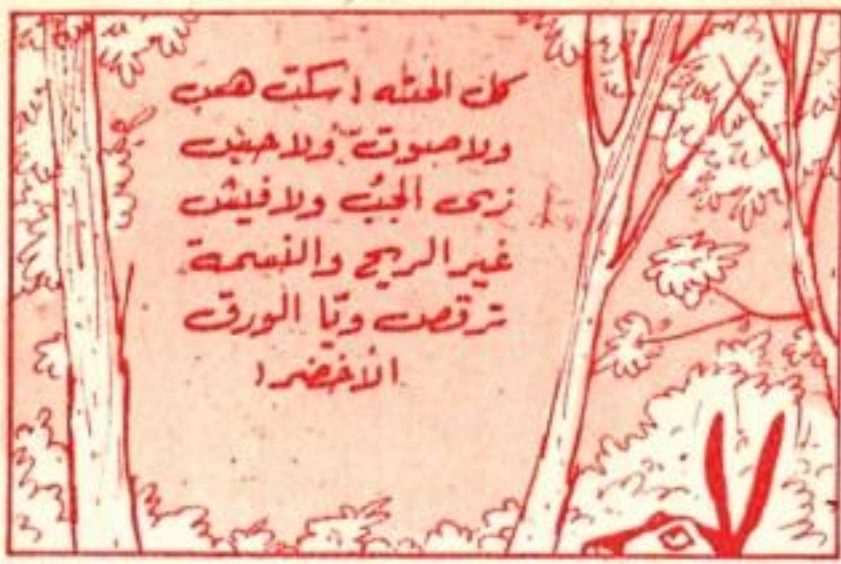 كل الحته اسكت هس
ولا صوت ولا حس
زى الجُب ولا فيش
غير الريح والنسمة
ترقص ويّا الورق
الأخضر!